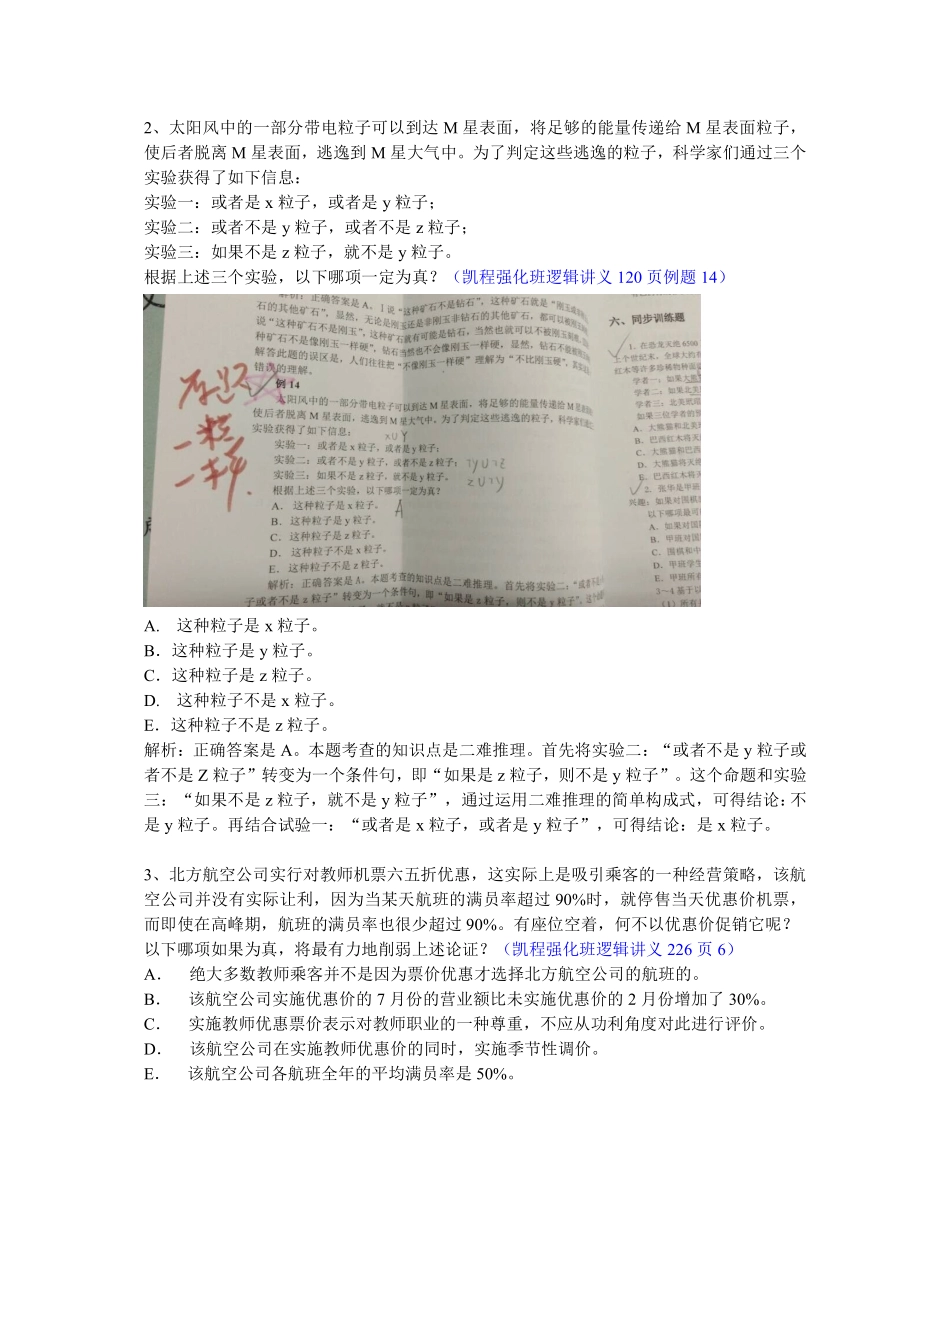 2、太阳风中的一部分带电粒子可以到达 M 星表面，将足够的能量传递给 M 星表面粒子，
使后者脱离 M 星表面，逃逸到 M 星大气中。为了判定这些逃逸的粒子，科学家们通过三个
实验获得了如下信息：
实验一：或者是 x 粒子，或者是 y 粒子；
实验二：或者不是 y 粒子，或者不是 z 粒子；
实验三：如果不是 z 粒子，就不是 y 粒子。
根据上述三个实验，以下哪项一定为真？（凯程强化班逻辑讲义 120 页例题 14）
解析：正确答案是 A。
石的其他矿石”，显然，无论是刚玉还是非刚玉非钻石的其他矿石，都可以被
说“这种矿石不是刚玉”，这种矿石就有可能是钻石，当然也就可以不被
种矿石不是像刚玉一样硬”，钻石当然也不会像刚玉一样硬，显然，钻石不能被
解答此题的误区是，人们往往把“不像刚玉一样硬”理解为“不比刚玉硬”，其实
错误的理解。
例 14
太阳风中的一部分带电粒子可以到达 M 星表面，将足够的能量传递给 M 星
使后者脱离 M 星表面，逃逸到 M 星大气中。为了判定这些逃逸的粒子，科学家们
实验获得了如下信息：
x∪y
实验一：或者是 x 粒子，或者是 y 粒子；
实验二：或者不是 y 粒子，或者不是 z 粒子； ¬y∪¬z
实验三：如果不是 z 粒子，就不是 y 粒子。 z∪¬y
根据上述三个实验，以下哪项一定为真？
A. 这种粒子是 x 粒子。 A
B. 这种粒子是 y 粒子。
C. 这种粒子是 z 粒子。
D. 这种粒子不是 x 粒子。
E. 这种粒子不是 z 粒子。
解析：正确答案是 A。本题考查的知识点是二难推理。首先将实验二：“或者
子或者不是 z 粒子”转变为一个条件句，即“如果是 z 粒子，则不是 y 粒子”。这个
原题
一粒
一样.
六、同步训练题
1. 在恐龙灭绝 6500
个世纪来，全球大约有
红木等许多珍稀物种面
学者一：如果大熊
学者二：如果北美
学者三：北美肥
如果三位学者的预
A. 大熊猫和北美
B. 巴西红木将灭
C. 大熊猫和巴西
D. 大熊猫将灭绝
E. 巴西红木将
2. 张华是甲班
兴趣：如果对围棋
以下哪项最可
A. 如果对国
B. 甲班对国
C. 围棋和中
D. 甲班学生
E. 甲班所有
3～4 基于以
（1）所有
A. 这种粒子是 x 粒子。
B．这种粒子是 y 粒子。
C．这种粒子是 z 粒子。
D. 这种粒子不是 x 粒子。
E．这种粒子不是 z 粒子。
解析：正确答案是 A。本题考查的知识点是二难推理。首先将实验二：“或者不是 y 粒子或
者不是 Z 粒子”转变为一个条件句，即“如果是 z 粒子，则不是 y 粒子”。这个命题和实验
三：“如果不是 z 粒子，就不是 y 粒子”，通过运用二难推理的简单构成式，可得结论：不
是 y 粒子。再结合试验一：“或者是 x 粒子，或者是 y 粒子”，可得结论：是 x 粒子。
3、北方航空公司实行对教师机票六五折优惠，这实际上是吸引乘客的一种经营策略，该航
空公司并没有实际让利，因为当某天航班的满员率超过 90%时，就停售当天优惠价机票，
而即使在高峰期，航班的满员率也很少超过 90%。有座位空着，何不以优惠价促销它呢？
以下哪项如果为真，将最有力地削弱上述论证？（凯程强化班逻辑讲义 226 页 6）
A． 绝大多数教师乘客并不是因为票价优惠才选择北方航空公司的航班的。
B． 该航空公司实施优惠价的 7 月份的营业额比未实施优惠价的 2 月份增加了 30%。
C． 实施教师优惠票价表示对教师职业的一种尊重，不应从功利角度对此进行评价。
D． 该航空公司在实施教师优惠价的同时，实施季节性调价。
E． 该航空公司各航班全年的平均满员率是 50%。